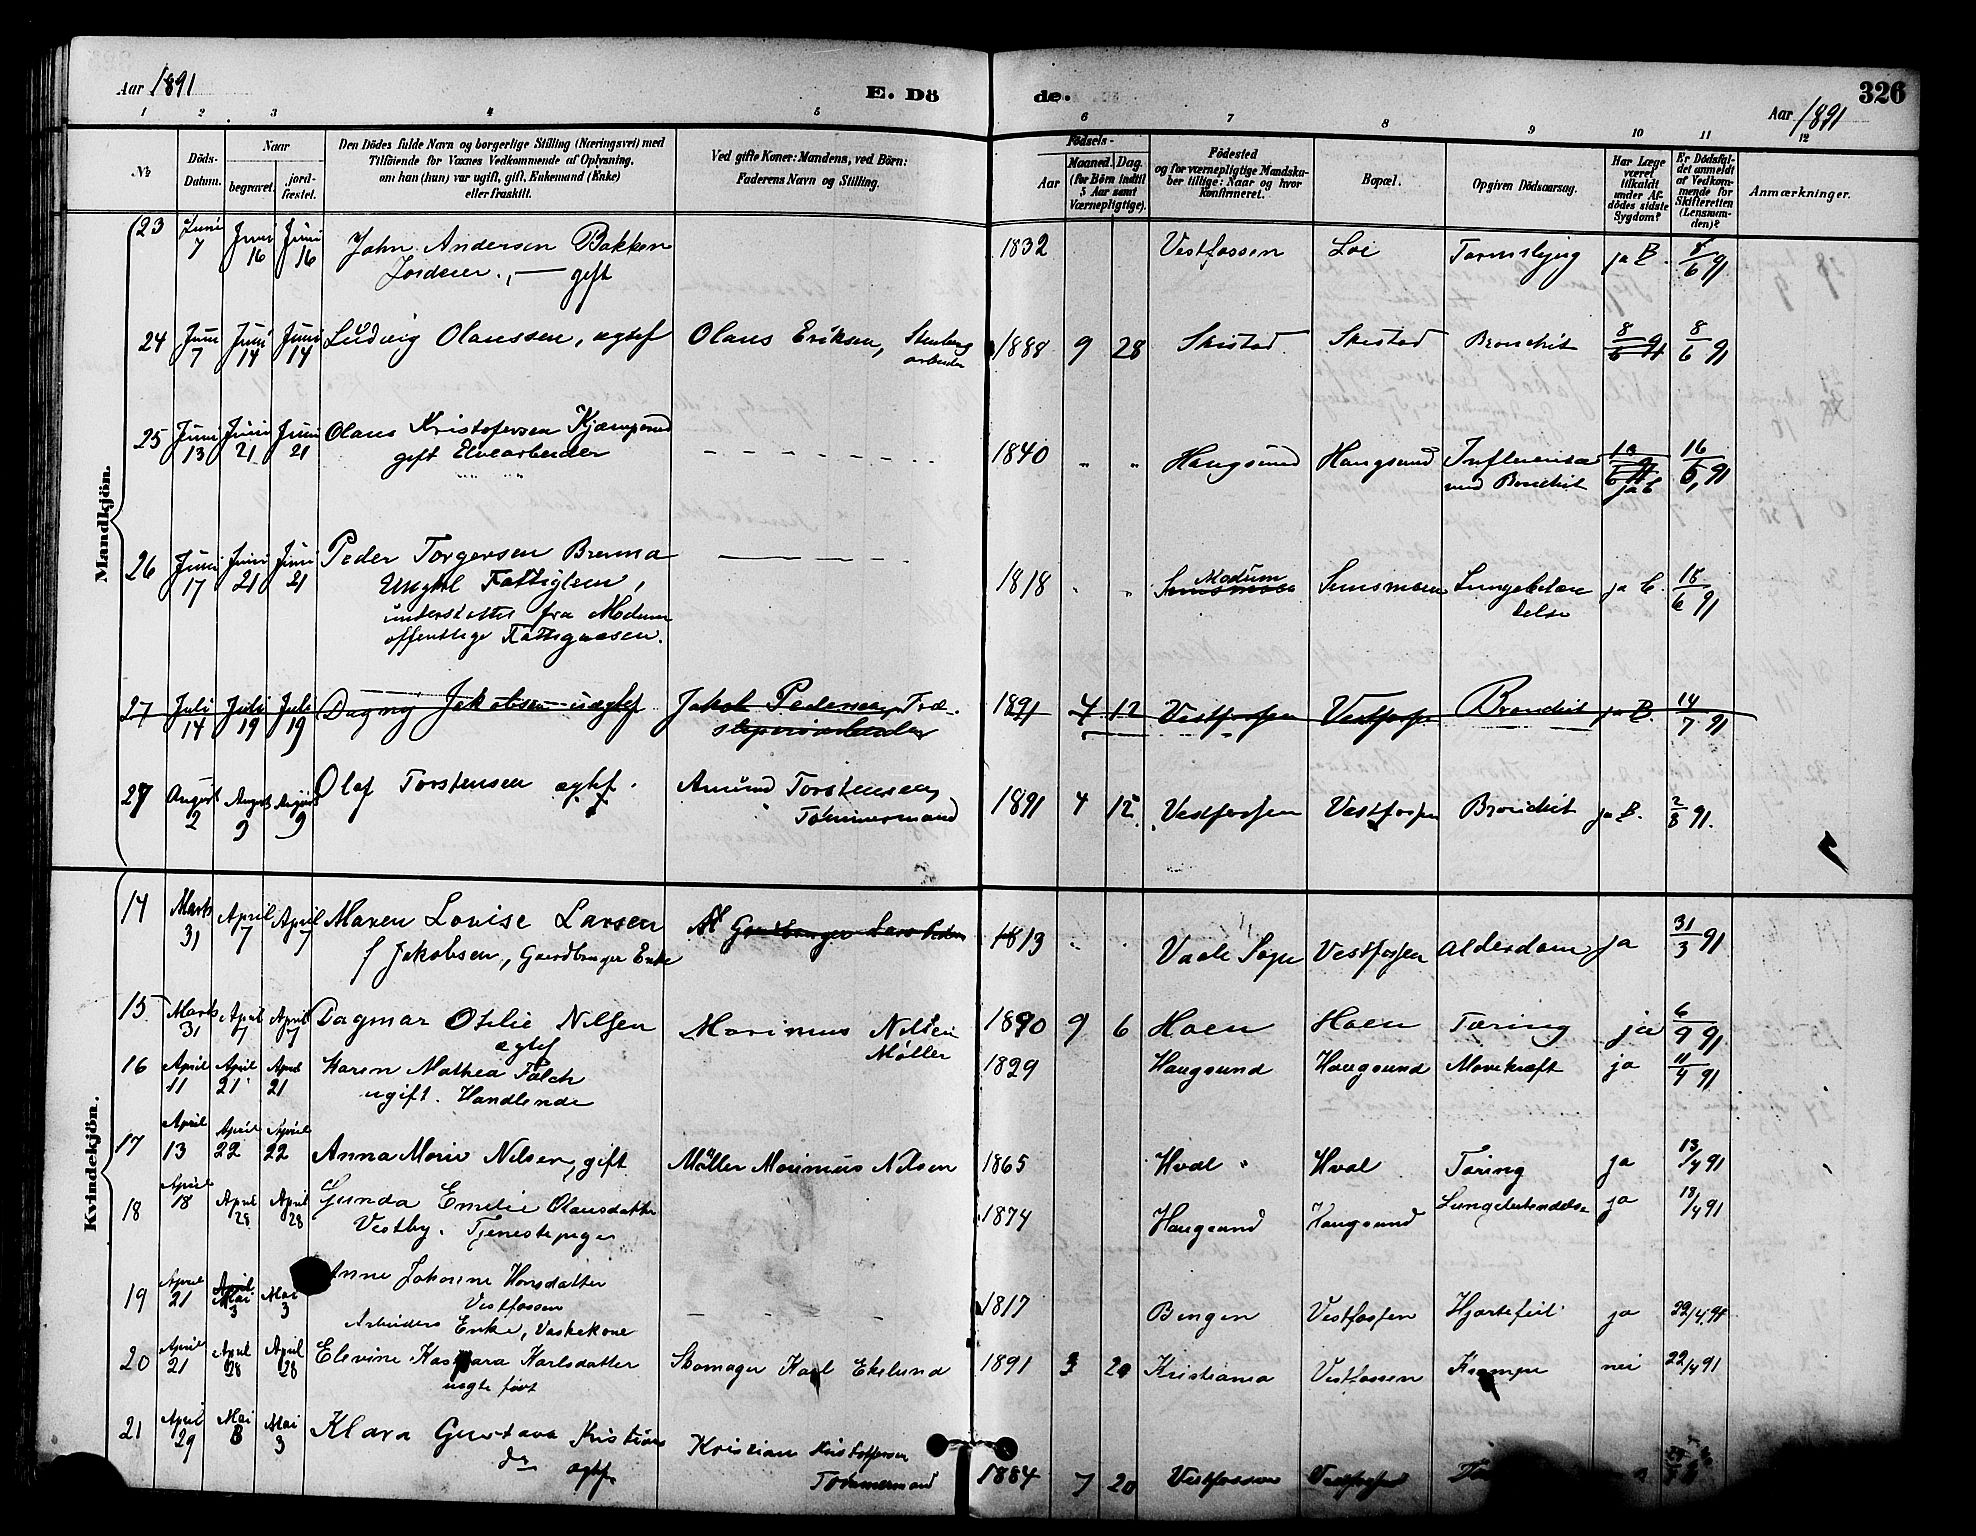 Aar 1891
E. Dö de.
326
Aar 1891
1 2 3 4 5 6 7 8 9 10 11 12
№
Döds-Datum.
Naar
begravet. jord-fæstet.
Den Dödes fulde Navn og borgerlige Stilling (Næringsvei) med
Tilföiende for Voxnes Vedkommende af Oplysning,
om han (hun) var ugift, gift, Enkemand (Enke)
eller fraskilt.
Ved gifte Koner: Mandens, ved Börn:
Faderens Navn og Stilling.
Födsels-
Aar Maaned. Dag.
(for Börn indtil
5 Aar samt
Værnepligtige).
Födested
og for værnepligtige Mandska-
ber tillige: Naar og hvor
Konfirmeret.
Bopæl.
Opgiven Dödsaarsag.
Har Læge
været
tilkaldt
under Af-
dödes sidste
Sygdom?
Er Dödsfal-
det anmeldt
af Vedkom-
mende for
Skifteretten
(Lensman-
den)?
Anmærkninger.
Mandkjön.
23 Juni 7 Juni 16 Juni 16 John Andersen Bakken 1832 Vestfossen Loe ja B.
gift
24 Juni 7 Juni 14 Juni 14 Ludvig Olaussen, ægtef Olaus Eriksen, 1888 9 28 Skistad Skistad Bronchit 8/6 91
arbeider
25 Juni 13 Juni 21 Juni 21 Olaus Kristofersen Kjæmperud 1840 " " Haugsund Haugsund Influensa 16/6 91
gift Elvearbeider med Bronchit
26 Juni 17 Juni 21 Juni 21 Peder Torgersen Brenna 1818 " " Modum Semsmoen Lungebetæn 18/6 91
Ungkl Fattiglem, delse
understøttet fra Modum
offentlige Fattigvæsen.
27 Juli 14 Juli 19 Juli 19 Dagny Jakobsen uægtef Jakob Pedersen, Træ- 1891 4 12 Vestfossen Vestfossen Bronchit ja B. 14/7 91
sliperiarbeider
27 August 2 August 9 August 9 Olaf Torstensen ægtef. Amund Torstensen, 1891 4 12 Vestfossen Vestfossen Bronchit ja B. 2/8 91.
Tømmermand
Kvindekjön.
14 Marts 31 April 7 April 7 Maren Lovise Larsen Gaardbruger 1813 " " Vaale Sogn Vestfossen Alderdom ja 31/3 91
f Jakobsen, Gaardbruger Enke
15 Marts 31 April 7 April 7 Dagmar Otilie Nilsen Marinus Nilsen 1890 9 6 Hoen Hoen Tæring ja 91
ægtef Møller
16 April 11 April 21 April 21 Karen Mathea Falch 1829 Haugsund Haugsund Mavekræft ja 11/4 91
ugift. Handlende
17 April 13 April 22 April 22 Anna Marie Nilsen, gift Møller Marinus Nilsen 1865 Hval Hval Tæring ja 13/4 91
18 April 18 April 28 April 28 Gunda Emelie Olausdatter 1874 Haugsund Haugsund Lungebetændelse ja 18/4 91
Vestby. Tjenestepige
19 April 21 April Mai 3 Mai 3 Anne Johanne Hansdatter 1817 Bingen Vestfossen Hjertefeil ja 22/4 91
Vestfossen
Arbeiders Enke, Vaskekone
20 April 21 April 28 April 28 Elevine Kaspara Karlsdatter Skomager Karl Ekelund 1891 3 20 Kristiania Vestfossen Krampe nei 22/4 91
uægte født
21 April 29 Mai 3 Mai 3 Klara Gustava Kristians Kristian Kristoffersen 1884 7 20 Vestfossen Vestfossen
dr ægtef. Tømmermand